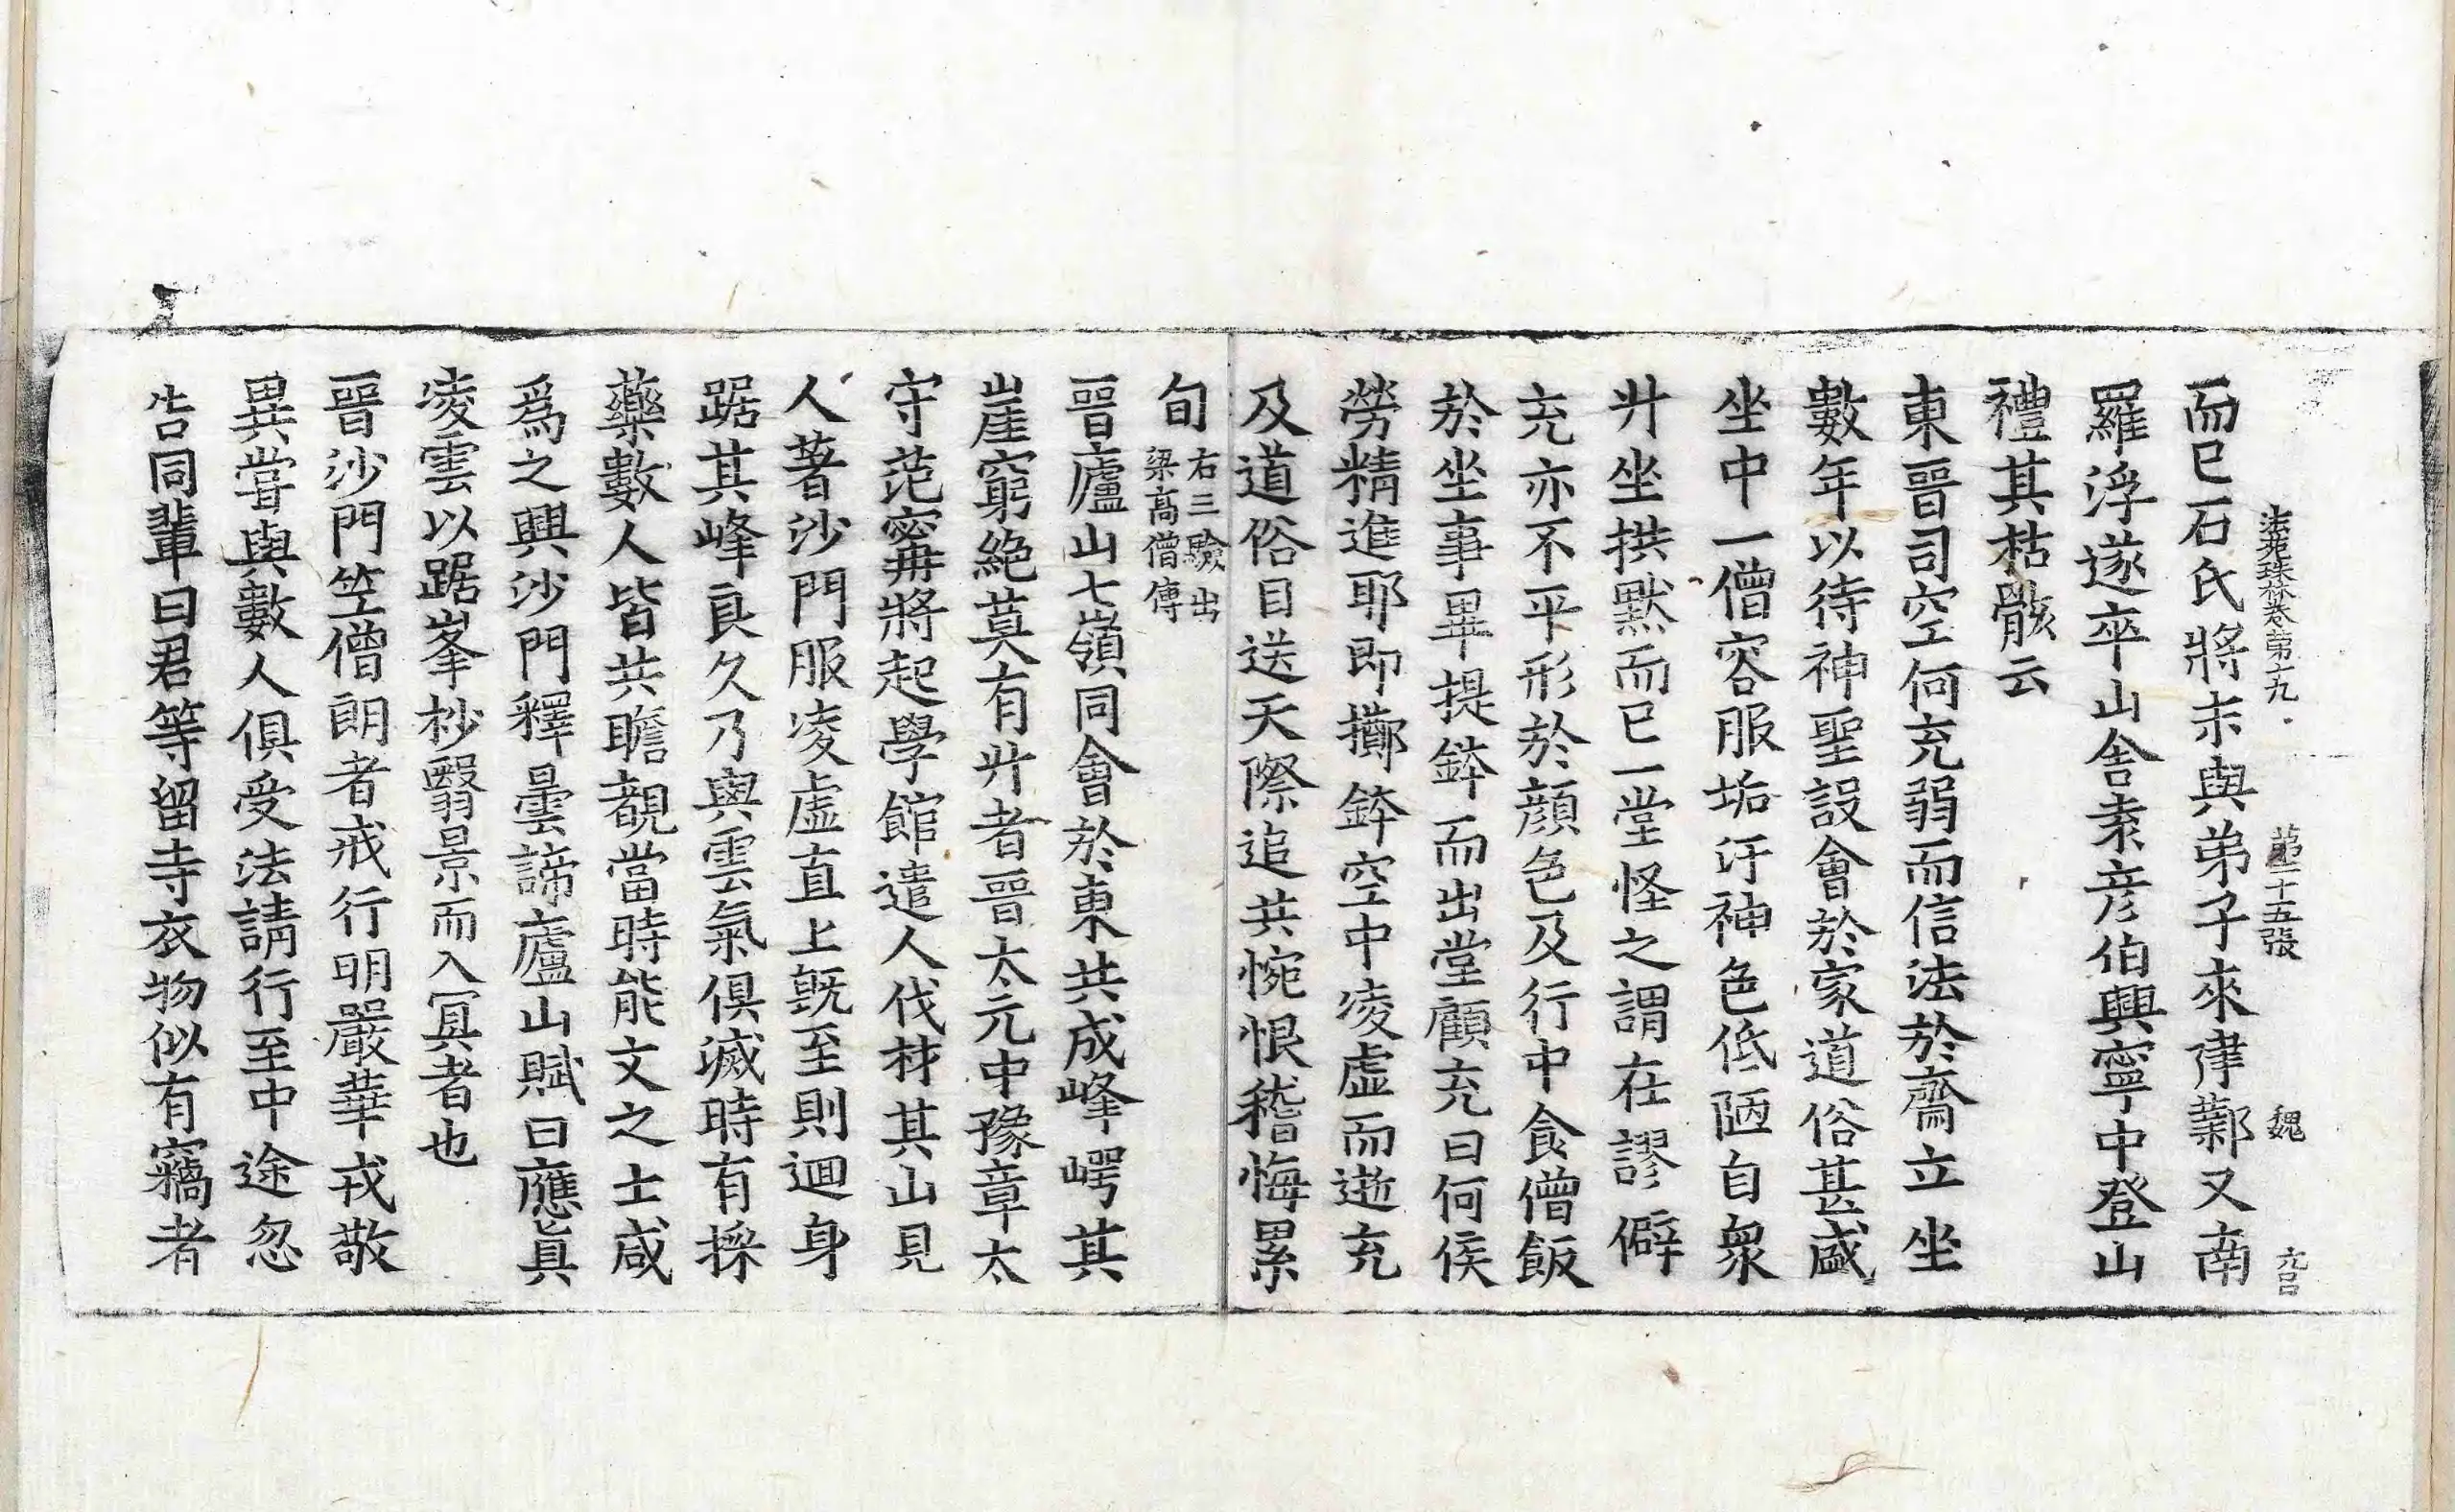 法苑珠林卷第十九 第二十五張 魏
而已石氏將末與弟子來建鄴又南
羅浮遂卒山舍袁彦伯興寧中登山
禮其枯骸云
東晉司空何充弱而信法於齋立坐
數年以待神聖設會於家道俗甚盛
坐中一僧容服垢汙神色低陋自衆
升坐拱默而已一堂怪之謂在謬僻
充亦不平形於顔色及行中食僧飯
於坐事畢提鉢而出堂顧充曰何俟
勞精進耶即擲鉢空中凌虛而逝充
及道俗目送天際追共惋恨稽悔累
旬
右三驗出
梁高僧傳
晉廬山七嶺同會於東共成峰崿其
崖窮絶莫有升者晉太元中豫章太
守范甯將起學館遣人伐材其山見
人著沙門服凌虛直上既至則迴身
踞其峰良久乃與雲氣俱滅時有採
藥數人皆共瞻覩當時能文之士咸
爲之興沙門釋曇諦廬山賦曰應眞
凌雲以踞峯杪翳景而入冥者也
晉沙門竺僧朗者戒行明嚴華戎敬
異嘗與數人俱受法請行至中途忽
告同輩曰君等留寺衣物似有竊者